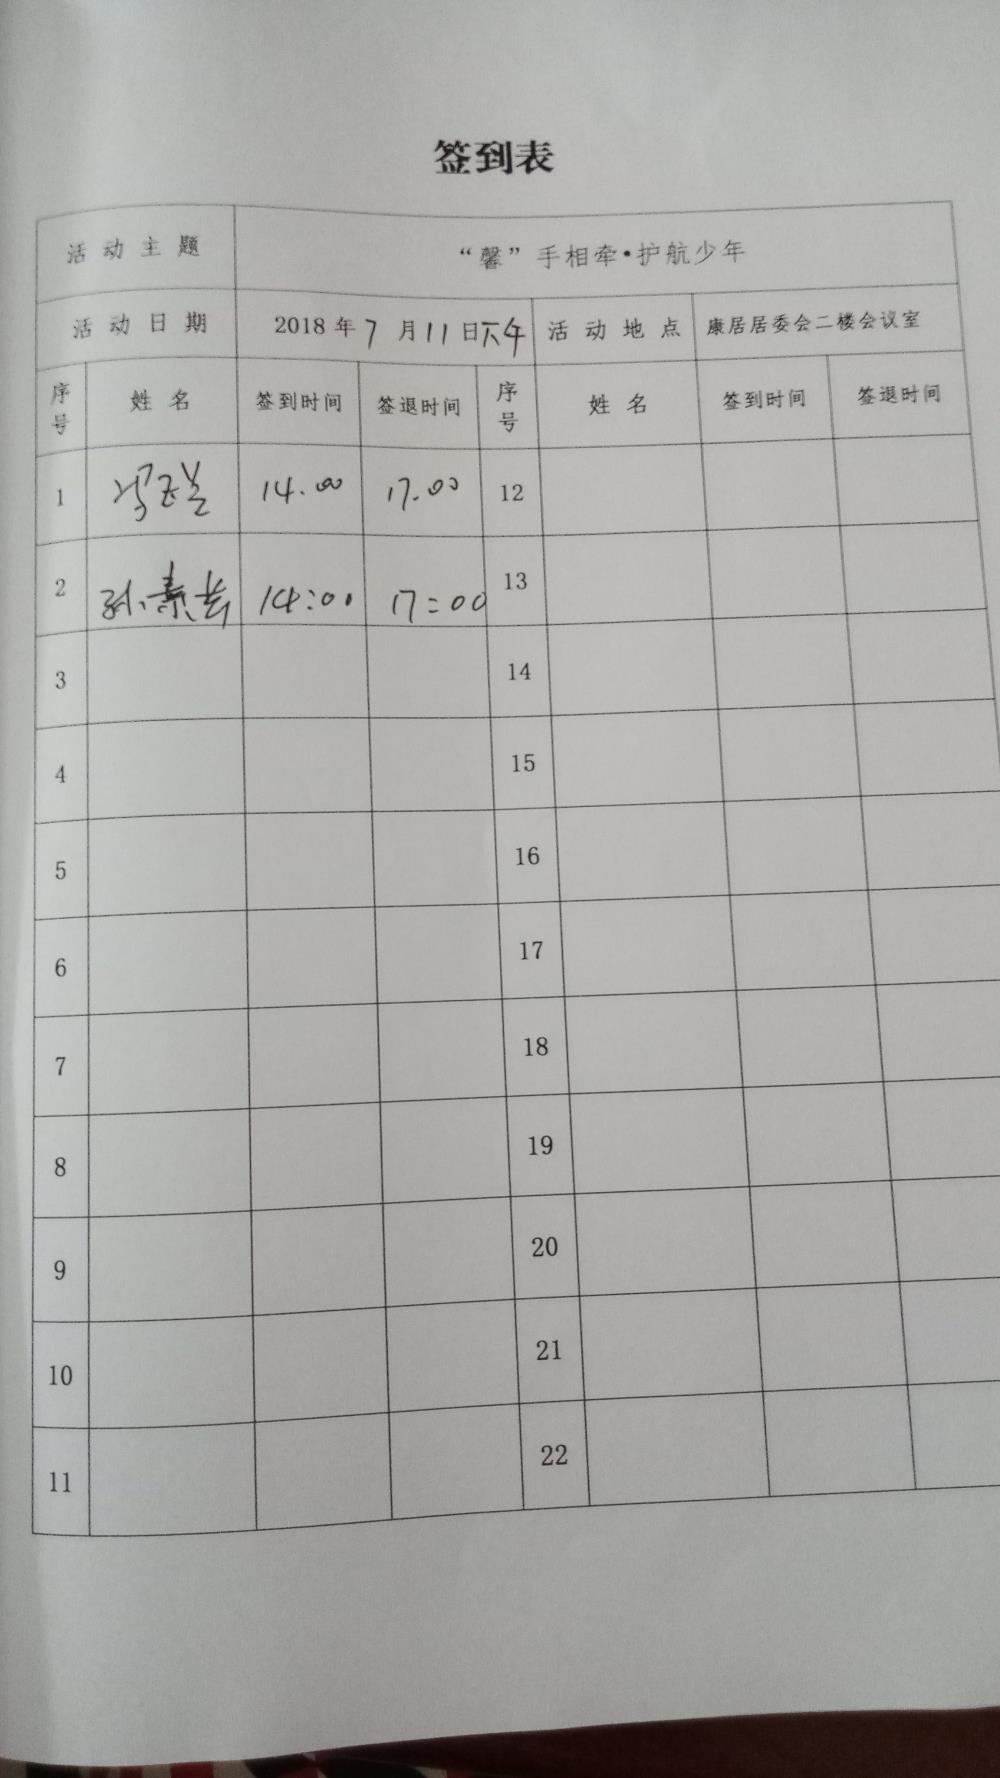 签到表
活动主题 “馨”手相牵·护航少年
活动日期 2018年7月11日下午 活动地点 康居居委会二楼会议室
序号 姓名 签到时间 签退时间 序号 姓名 签到时间 签退时间
1 14.00 17.00 12
2 孙素 14:00 17:00 13
3 14
4 15
5 16
6 17
7 18
8 19
9 20
10 21
11 22